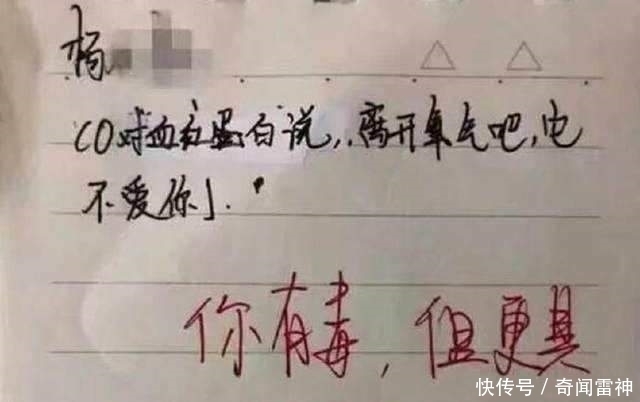 杨
CO对血红蛋白说，离开氧气吧，它
不爱你」.
你有毒，但更具
快传号／奇闻雷神